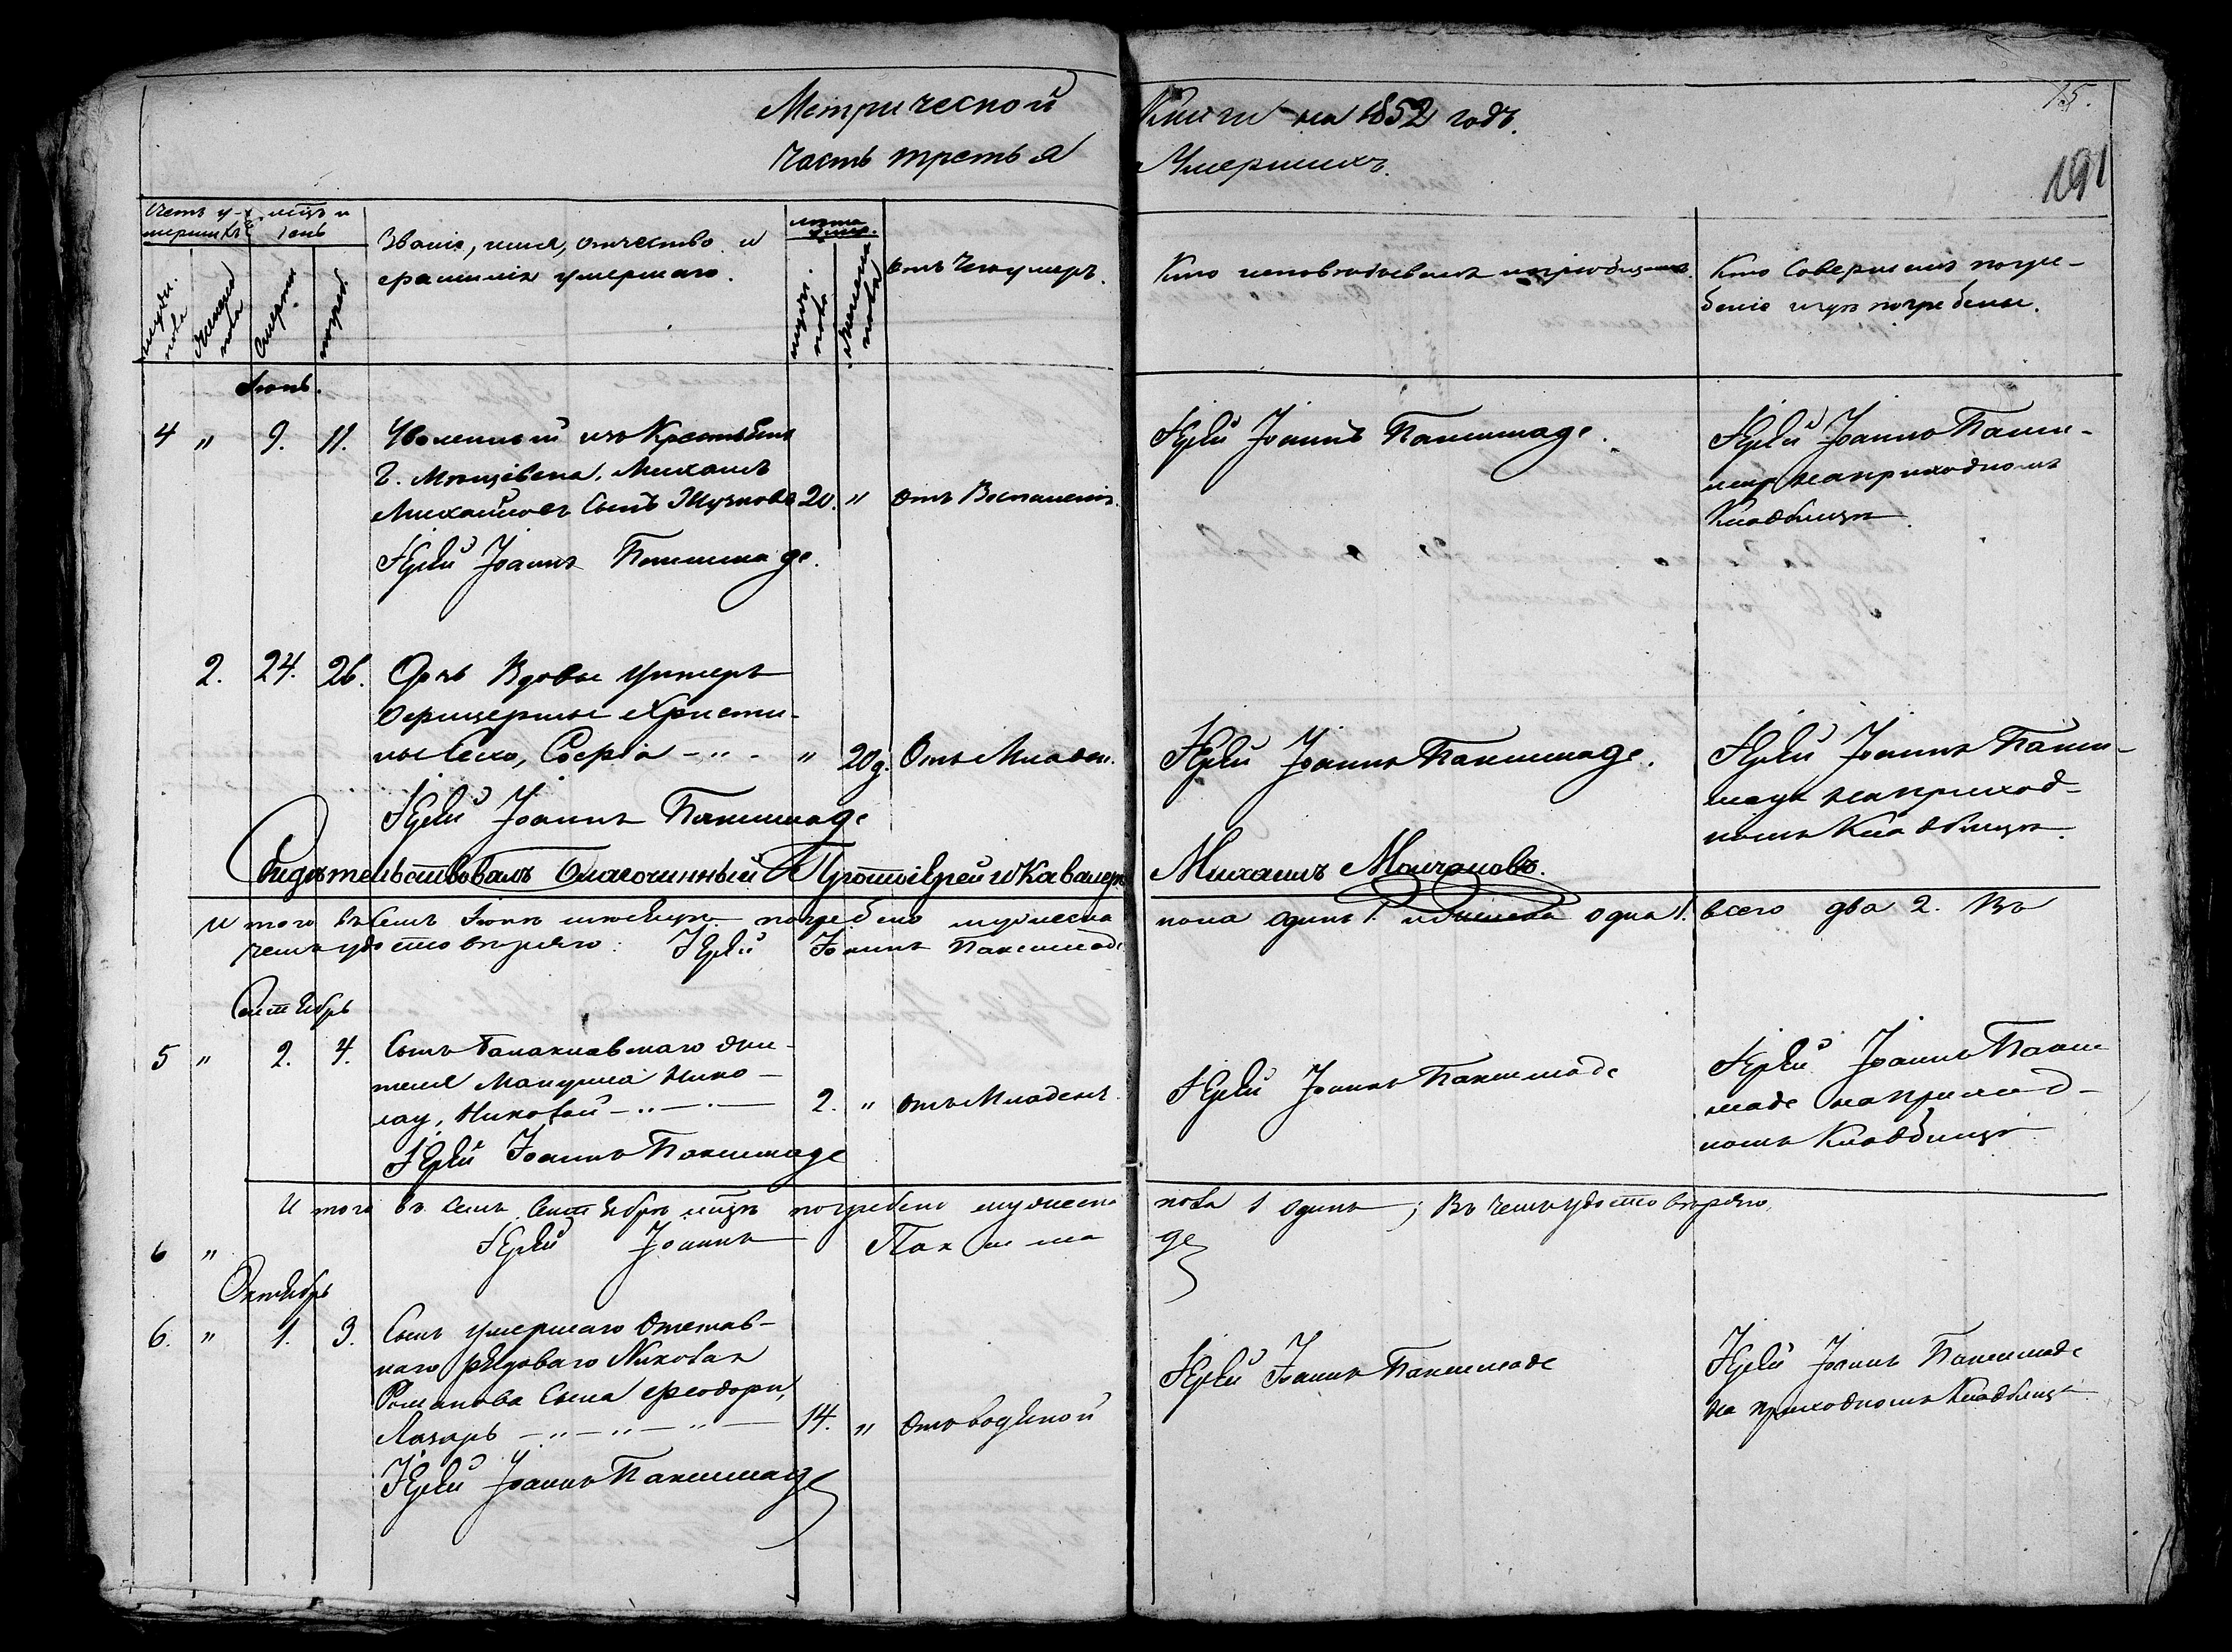 Метрической Книги на 1852 годъ.
часть третья Умершихъ.
15.
191
Счетъ у-
мершихъ
мцъ и
день
Званіе, имя, отчество и
фамилія умершаго.
лѣта
умер.
Отъ чего умеръ.
Кто исповѣдывалъ и пріобщалъ.
Кто Совершилъ погре-
беніе и гдѣ погребены.
мужес.
пола
женска
пола
Смерти
погреб.
мужес.
пола
женска
пола
Іюнь.
4 " 9. 11. Уволенный изъ Крестьянъ
Г. Михаилъ
Михайловъ Сынъ 20. " отъ Воспаленія.
Іерей Іоаннъ Паксимаде.
Іерей Іоаннъ Паксимаде.
Іерей Іоаннъ Пакси-
маде на приходномъ
Кладбищѣ.
2. 24. 26. Дочь Вдовы Унтеръ
Офицерши Христи-
ны Софія - " - " 20 д. Отъ Младен.
Іерей Іоаннъ Паксимаде
Іерей Іоаннъ Паксимаде.
Іерей Іоаннъ Пакси-
маде на приход-
номъ Кладбищѣ.
Свидѣтельствовалъ Благочинный Протоіерей и Кавалеръ Михаилъ Молчановъ.
И того въ семъ Іюнѣ мѣсяцѣ погребено мужеска пола одинъ 1. и женска одна 1. всего два 2. Въ
чемъ удостовѣряю: Іерей Іоаннъ Паксимаде
Сентябрь
5 " 2. 4. Сынъ Балаклавскаго жи-
теля Мануила Нико-
лау, Николай - " - " - 2. " отъ Младенч.
Іерей Іоаннъ Паксимаде
Іерей Іоаннъ Паксимаде
Іерей Іоаннъ Пакси
маде на приход-
номъ Кладбищѣ
И того въ семъ Сентябрѣ мцѣ погребено мужеска пола 1 одинъ; Въ чемъ удостовѣряю.
6 " Іерей Іоаннъ Паксима де
Октябрь
6. " 1. 3. Сынъ умершаго Отстав-
наго рядоваго Николая
Романова Сына Феодори,
Лазарь - " - " - " - 14. " Отъ водяной
Іерей Іоаннъ Паксимаде
Іерей Іоаннъ Паксимаде
Іерей Іоаннъ Паксимаде
на приходномъ Кладбищѣ